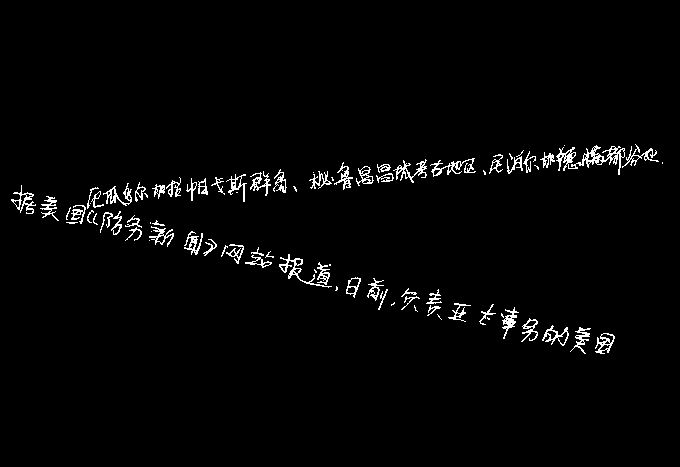 厄瓜多尔加拉帕戈斯群岛、秘鲁昌昌城考古地区、尼泊尔加德满都谷地.
据美国《防务新闻》网站报道,日前,负责亚太事务的美国